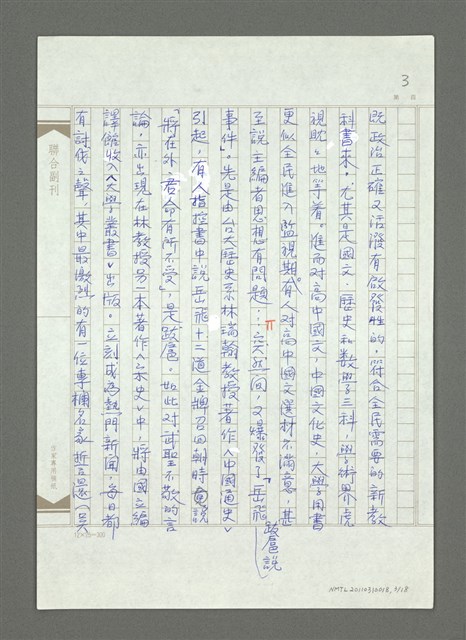 3
第 頁
既政治正確又活潑有啟發性的，符合全民需要的新教
科書來。尤其是國文、歷史和數學三科，學術界虎
視眈々地等着。進而對高中國文、中國文化史，大學用書
更似全民進入監視期。有人對高中國文選材不滿意，甚
至說主編者思想有問題……突然一回，又爆發了「岳飛跋扈說
事件」。先是由台大歷史系林瑞翰教授著作《中國通史》
引起，有人指控書中說岳飛十二道金牌召回朝時竟說
「將在外，君命有所不受」，是跋扈。如此對武聖不敬的言
論，亦出現在林教授另一本著作《宋史》中，將由國立編
譯館收入《大學叢書》出版。立刻成為熱門新聞，每日都
有討伐之聲，其中最激烈的有一位專欄名家
聯合副刊
12×25=300
NMTL20110312018, 3/18